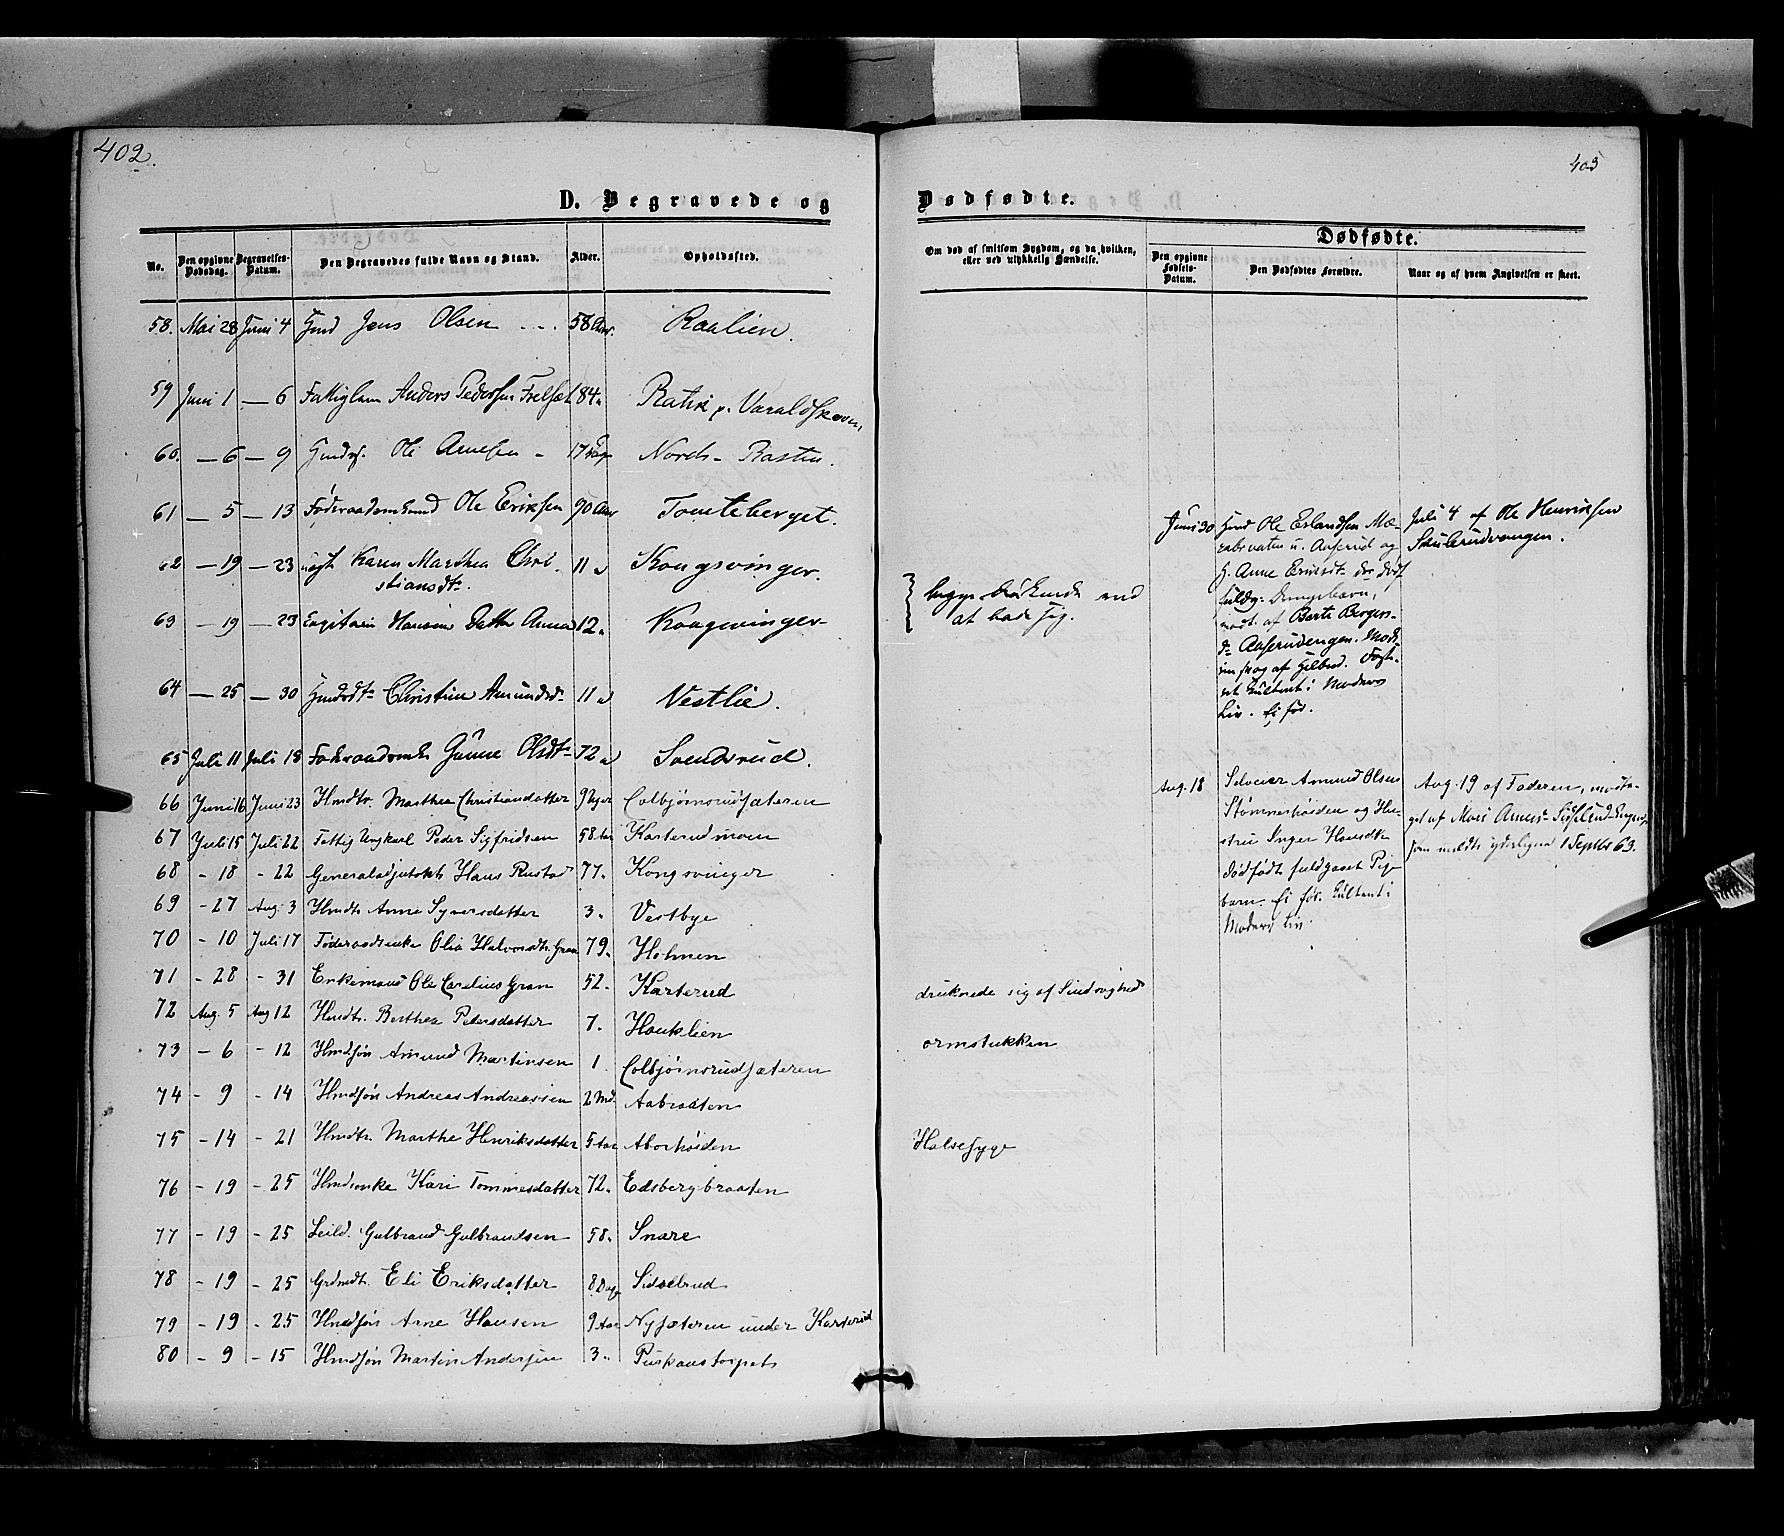 402.
403
D. Begravede og Dødfødte.
No. Den opgivne Dødsdag. Begravelses-Datum. Den Begravedes fulde Navn og Stand. Alder. Opholdssted.
58. Mai 28 Juni 4 Gmd Jens Olsen 58 Aar. Raalien.
59 Juni 1 — 6 Fattiglem Anders Pedersen 84 " Varaldskoven
60. — 6 — 9 Ole Arnesen - 17 Dage Nordr. Rasten.
61 — 5 — 13 Føderaadsmand Ole Eriksen 90 Aar Tomteberget.
62 — 19 — 23 Karen Marthea Chri-
stiansdtr. 11 " Kongsvinger.
63 — 19 — 23 Hansens Datter Anna 12 " Kongsvinger
64 — 25 — 30 Christine Amundsd. 11 " Vestlie.
65 Juli 11 Juli 18 Olsdtr 72 " Svendsrud.
66 Juni 16 Juni 23 Hmdtr. Marthea Christiandatter 9 Uger Colbjørnsrudsæteren
67 Juli 15 Juli 22 Fattig Ungkarl Peder Sigfridsen 58 Aar Karterudmoen
68 - 18 - 22 Generaladjutant Hans Rustad 77. Kongsvinger
69 - 27 Aug. 3 Hmdtr. Anne Syversdatter 3. Vestbye
70 - 10 Juli 17 Føderaadsenke Olia Halvorsdtr. Gran 79. Holmen
71 - 28 - 31 Enkemand Ole Carelius Gran 52. Karterud
72 Aug. 5 Aug 12 Hmdtr. Berthea Pedersdatter 7. Hauklien
73 - 6 - 12 Hmdsøn Amund Martinsen 1. Colbjørnsrudsæteren
74 - 9 - 14 Hmdsøn Andreas Andreassen 2 Md. Aabraaten
75 - 14 - 21 Hmdtr. Marthe Henriksdatter 5 Aar Aborhøiden
76 - 19 - 25 Hmdenke Kari Tommesdatter 72. Edsbergbraaten
77 - 19 - 25 Leild. Gulbrand Gulbrandsen 58. Snare
78 - 19 - 25 Grdmdtr. Eli Eriksdatter 8 Dage Sidselrud
79 - 19 - 25 Hmdsøn Arne Hansen 9 Aar Nysæteren under Karterud
80 - 9 - 15 Hmdsøn Martin Andersen 3. Puskaustorpet
Om død af smitsom Sygdom, og da hvilken,
eller ved ulykkelig Hændelse.
begge druknede ved
at bade sig.
druknede sig af Sindsvaghed
ormstukken
Halsesyge
Dødfødte.
Den opgivne Fødsels-Datum. Den Dødfødtes Forældre. Naar og af hvem Angivelsen er skeet.
Juni 30 Gmd Ole Erlandsen Mæ-
rabraaten u. Aaserud og
H. Anne Ericsdtr. død
fuldg. Drengebarn,
modt. af Berte Bergers-
d. Aaserudengen. Mod-
Fost-
ret qultent i Moders
Liv. Ei før.
Juli 4 af Ole Henriksen
Skulerudvangen.
Aug. 18 Selveier Amund Olsen
Strømnershøiden og Hu-
stru Inger Hansdtr
dødfødt fuldgaaet Pige-
barn. Ei før. Qultent i
Moders Liv
Aug. 19 af Faderen, modta-
get af Mari Arnesdr. Sidselrud
som meldte yderligere 1 Septbr 63.